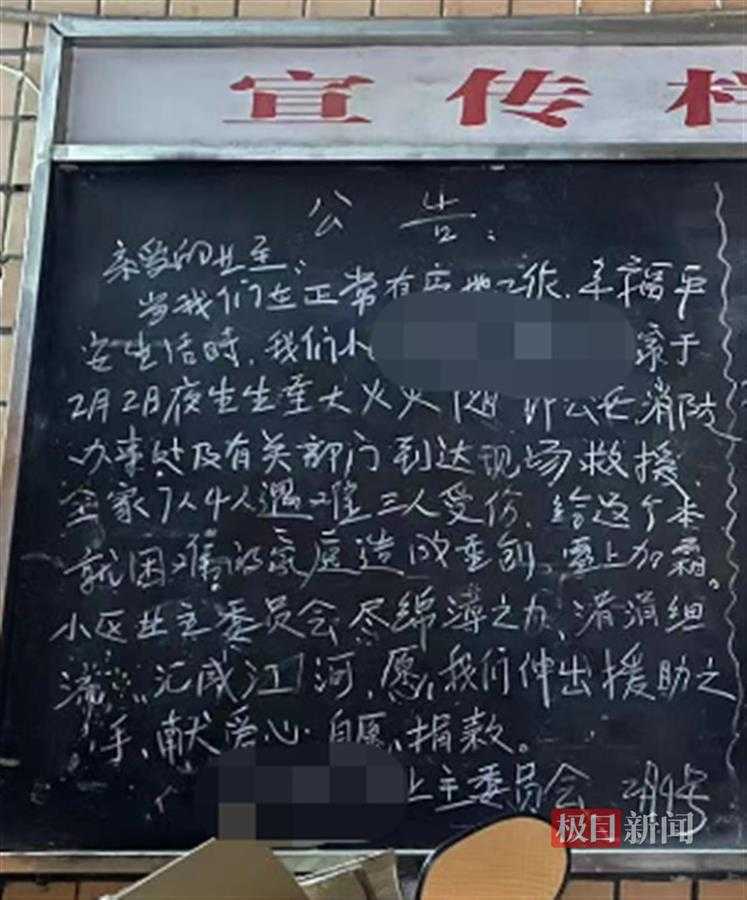 宣传栏
公告:
亲爱的业主:
当我们在正常有 工作.幸福平
安生活时.我们小 家于
2月2日夜 大火 公安消防
办事处及有关部门到达现场救援.
全家7人4人遇难三人受伤.给这个本
就困难的家庭造成重创.雪上加霜。
小区业主委员会尽绵薄之力、涓涓细
流,汇成江河,愿,我们伸出援助之
手、献爱心.自愿、捐款。
业主委员会 2月9号
极目新闻